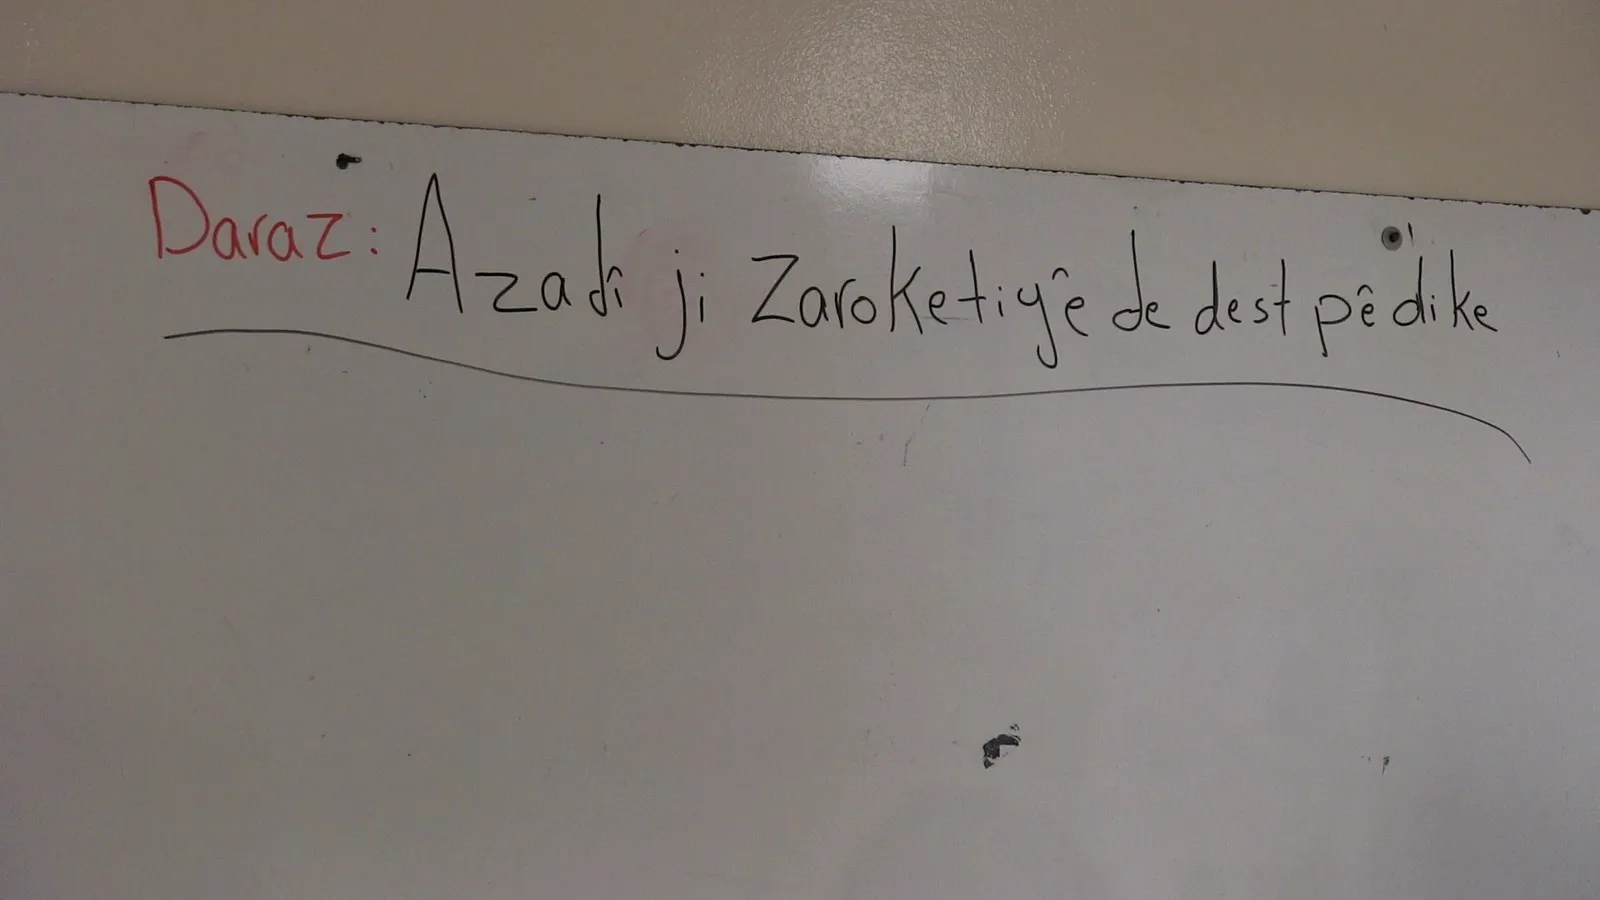 Daraz: Azadî ji Zaroketiyê de dest pê dike